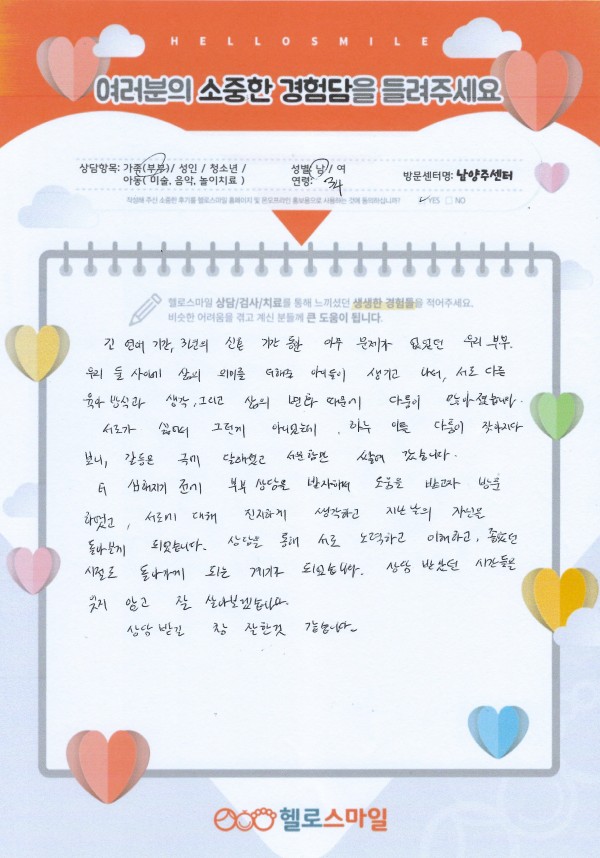 HELLOSMILE
여러분의 소중한 경험담을 들려주세요
상담항목: 가족(부부)/ 성인 / 청소년 /
아동( 미술, 음악, 놀이치료 )
성별: 남 / 여
연령: 34
방문센터명: 남양주센터
작성해 주신 소중한 후기를 헬로스마일 홈페이지 및 온오프라인 홍보용으로 사용하는 것에 동의하십니까? ✓YES □ NO
헬로스마일 상담/검사/치료를 통해 느끼셨던 생생한 경험들을 적어주세요.
비슷한 어려움을 겪고 계신 분들께 큰 도움이 됩니다.
긴 연애 기간, 3년의 신혼 기간 동안 아무 문제가 없었던 우리 부부.
우리 둘 사이에 삶의 의미를 더해주는 아이들이 생기고 나서, 서로 다른
육아 방식과 생각, 그리고 삶의 변화 때문에 다툼이 많아졌습니다.
서로가 싫어서 그런게 아니었는데, 하루 이틀 다툼이 잦아지다
보니, 갈등은 극에 달하였고 서운함만 쌓여 갔습니다.
더 심해지기 전에 부부 상담을 받자하며 도움을 받고자 방문
하였고, 서로에 대해 진지하게 생각하고 지난 날의 자신을
돌아보게 되었습니다. 상담을 통해 서로 노력하고 이해하고, 좋았던
시절로 돌아가게 되는 계기가 되었습니다. 상담 받았던 시간들을
잊지 않고 잘 살아보겠습니다.
상담 받길 참 잘한것 같습니다.
헬로스마일